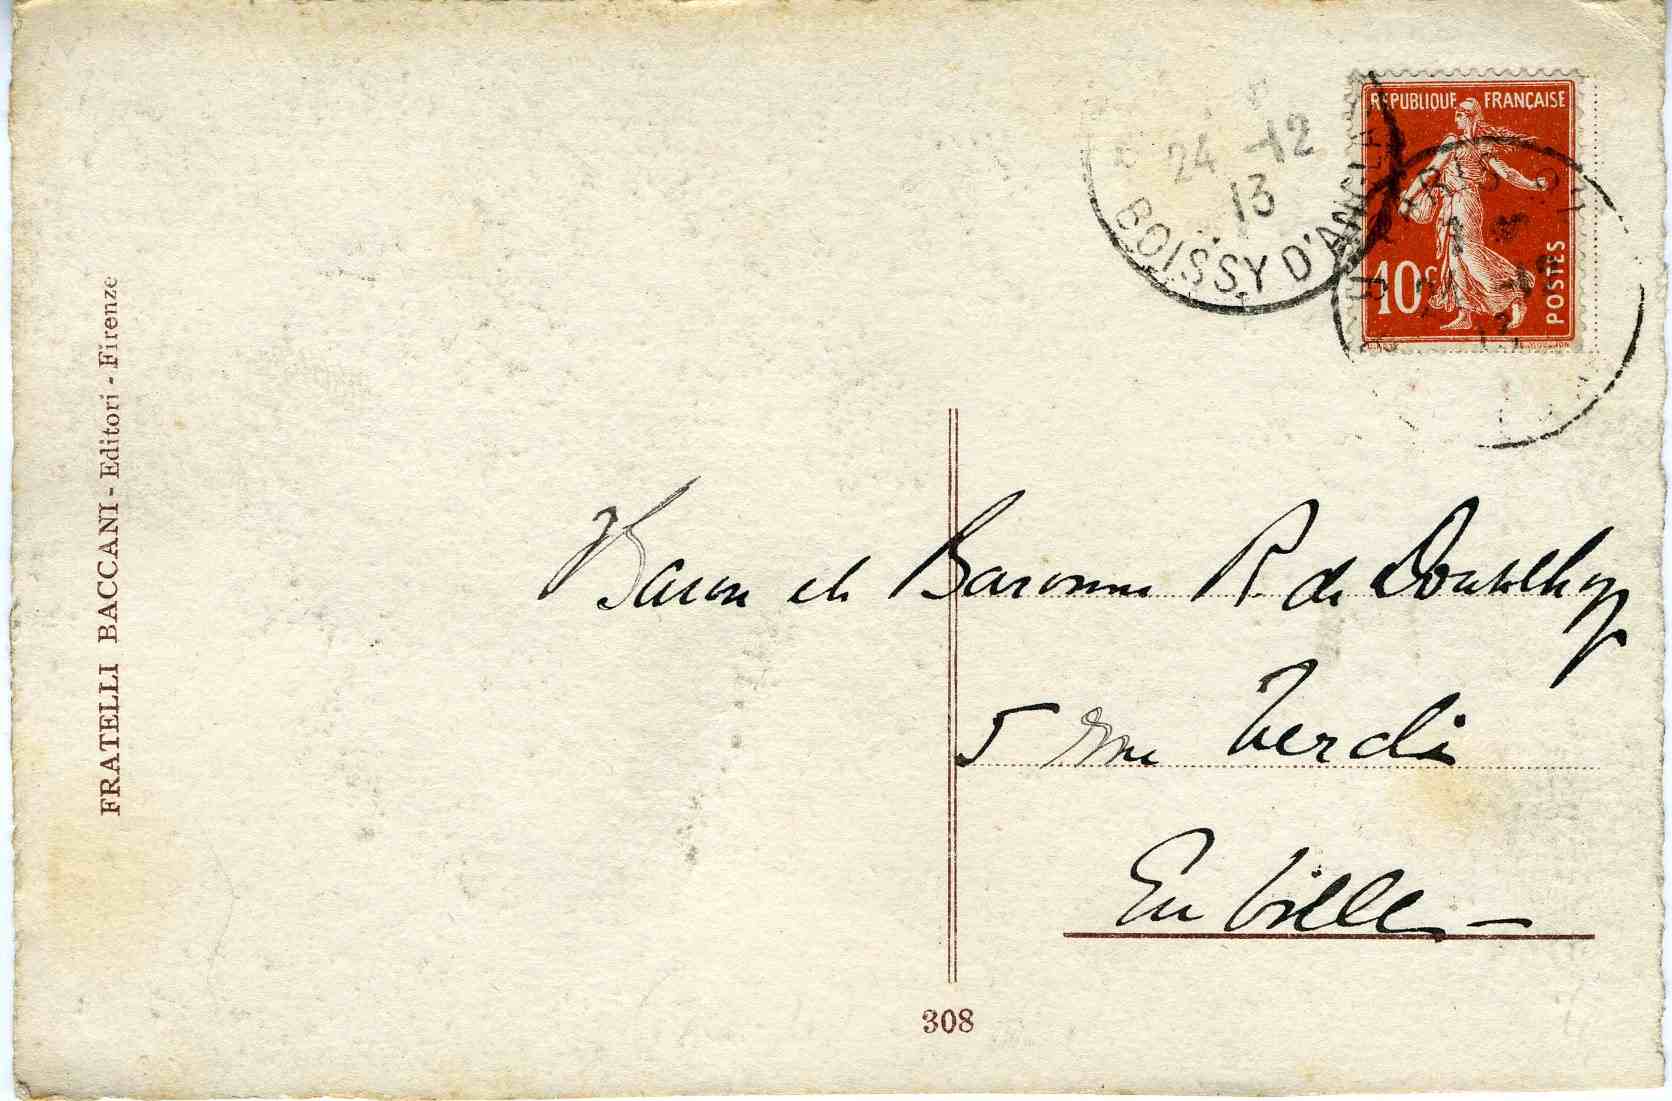 RÉPUBLIQUE FRANÇAISE
10c
POSTES
24 -12
13
BOISSY D'ANGLAS
FRATELLI BACCANI - Editori - Firenze
Baron et Baronne R. de
5 rue Verdi
En Ville -
308